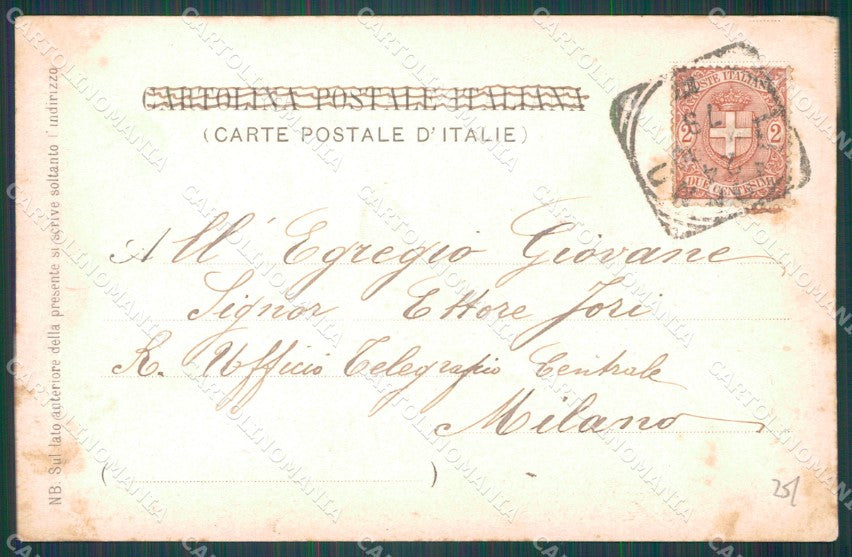 CARTOLINA POSTALE ITALIANA
(CARTE POSTALE D'ITALIE)
POSTE ITALIANE
2 2
DUE CENTESIMI
All' Egregio Giovane
Signor Ettore Jori
R. Ufficio Telegrafico Centrale
Milano
NB. Sul lato anteriore della presente si scrive soltanto l'indirizzo
25/
CARTOLINOMANIA